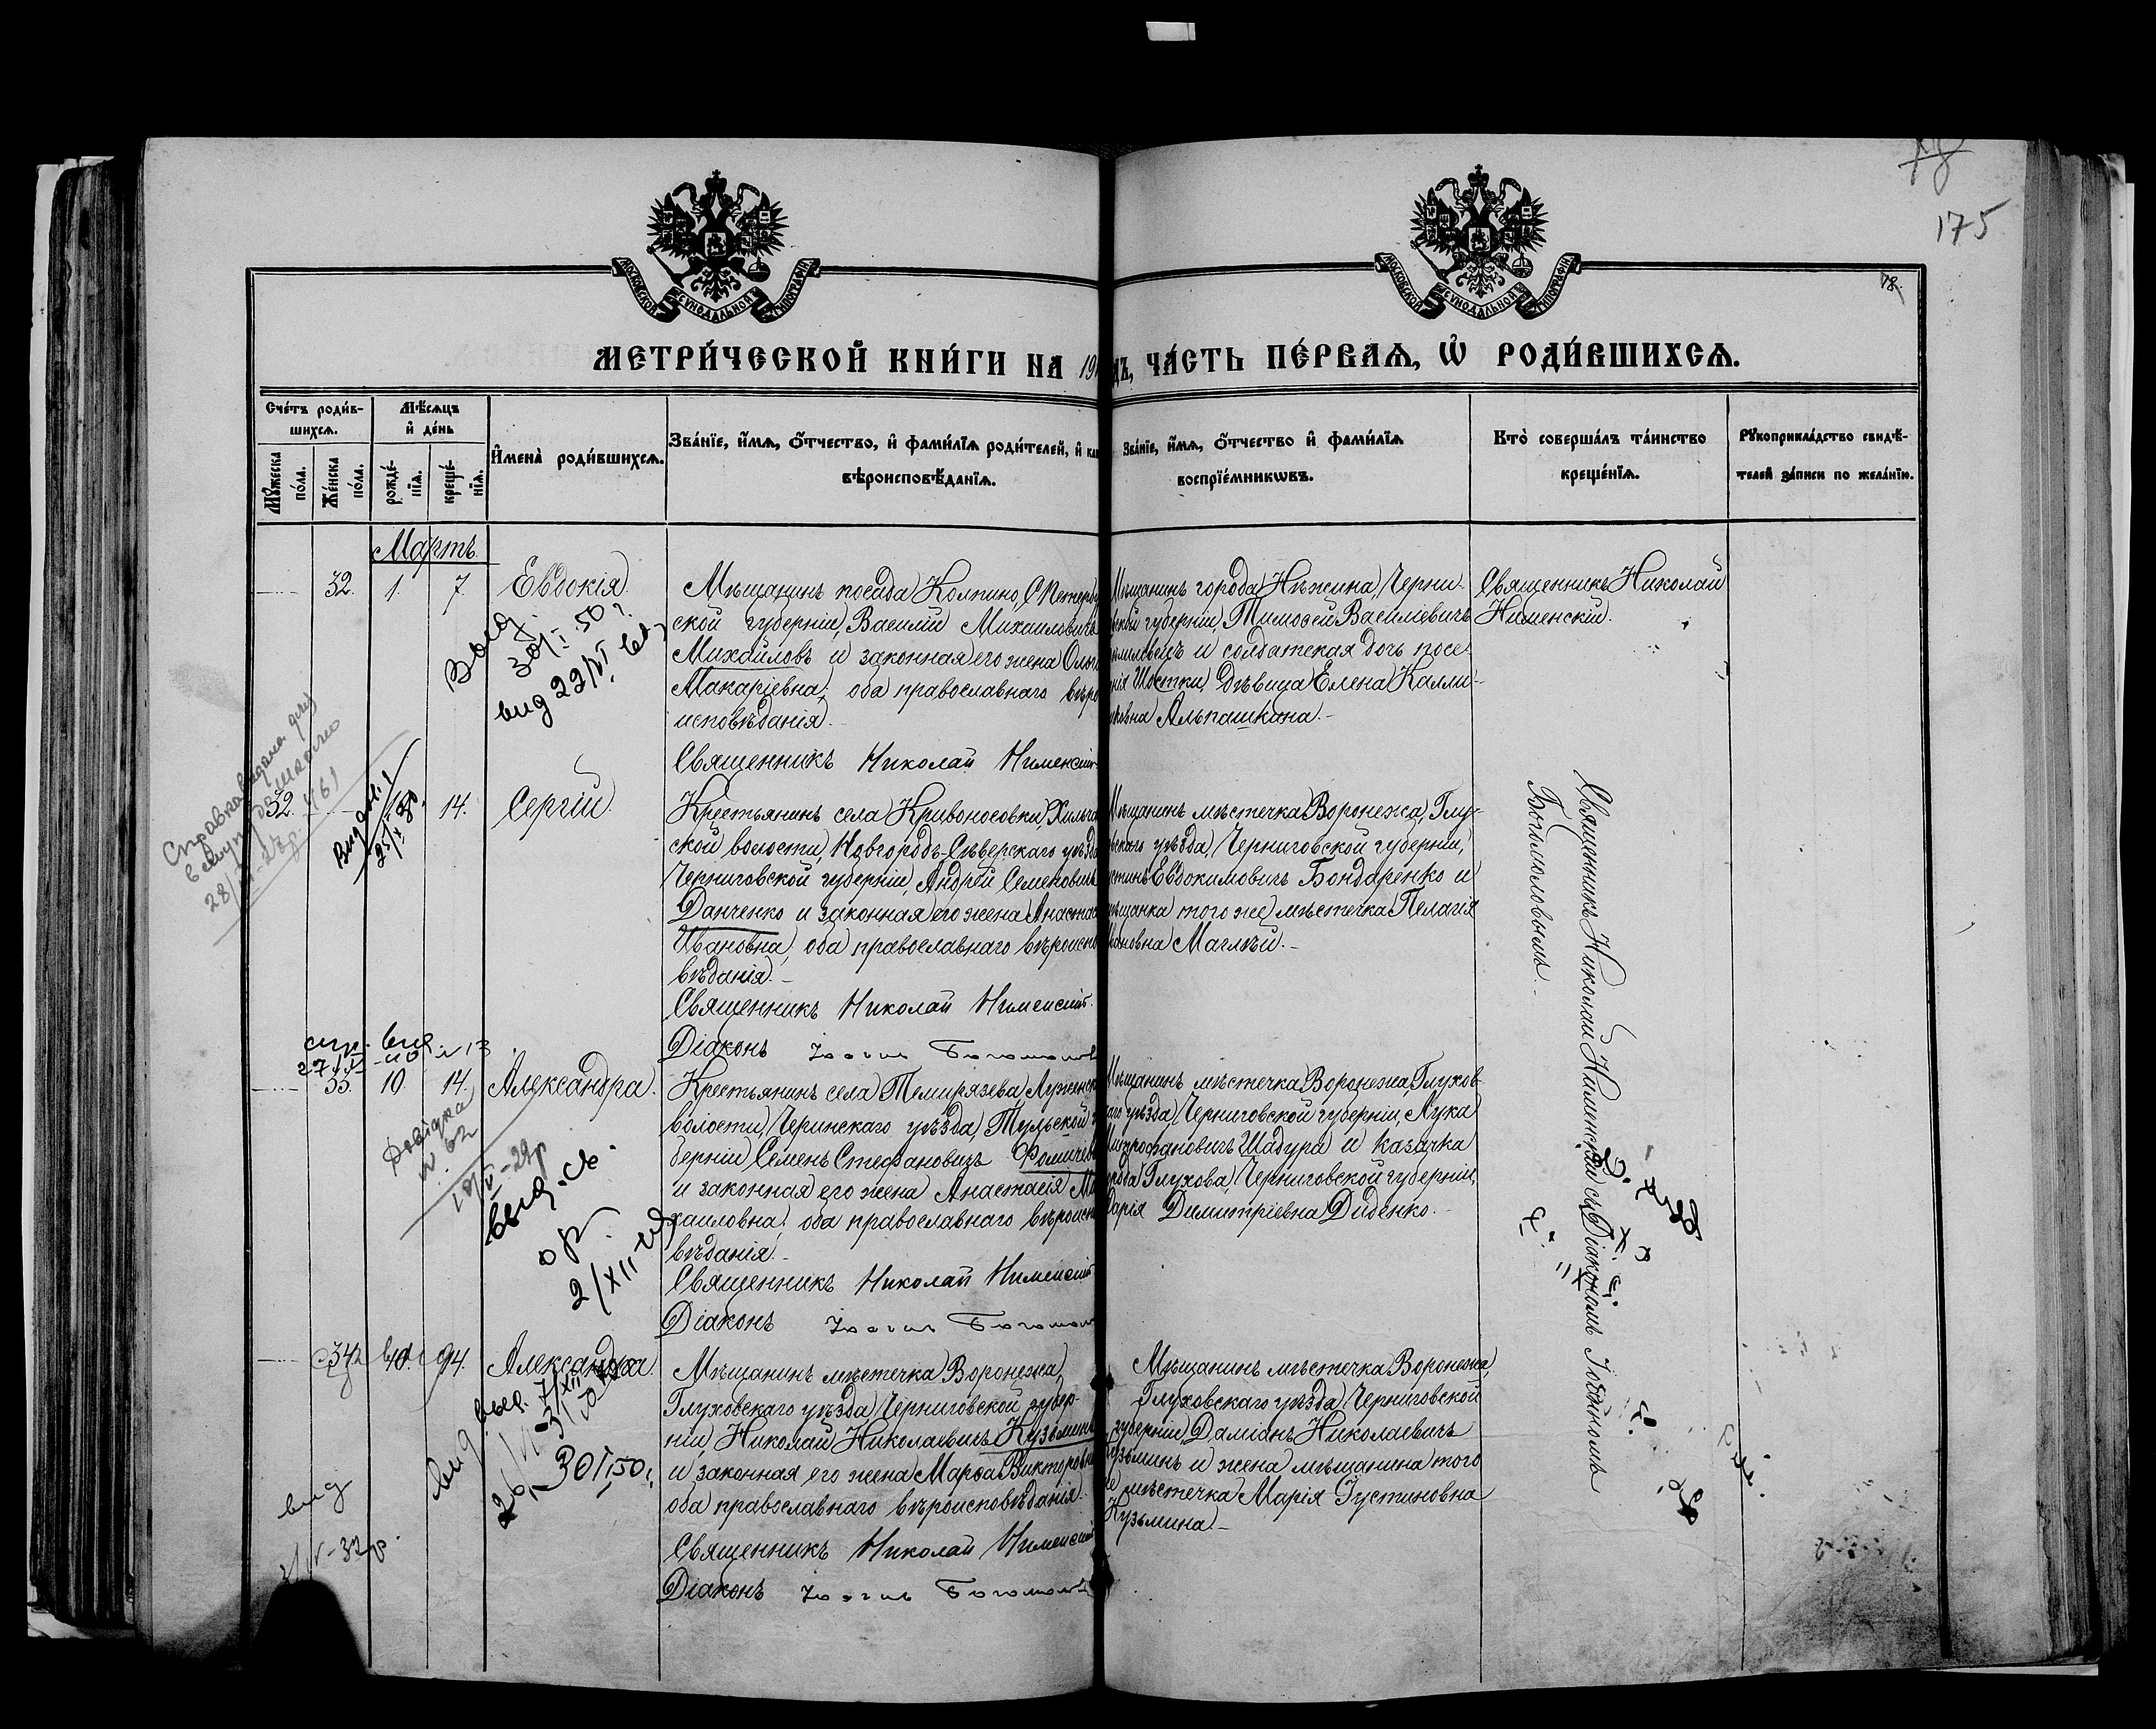 175
18.
МОСКОВСКОЙ СУНОДАЛЬНОЙ ТИПОГРАФІИ
МОСКОВСКОЙ СУНОДАЛЬНОЙ ТИПОГРАФІИ
МЕТРИ́ЧЕСКОЙ КНИ́ГИ НА 191
ДЪ, ЧА́СТЬ ПЕ́РВАѦ, Ѽ РОДИ́ВШИХСѦ.
Сче́тъ роди́в-
шихсѧ.
Мꙋ́жеска
по́ла.
Же́нска
по́ла.
Мѣ́сѧцъ
и҆ де́нь
рожде́-
нїѧ.
креще́-
нїѧ.
И҆мена̀ роди́вшихсѧ.
Зва́нїе, и҆́мѧ, ѻ҆́тчество, и҆ фами́лїѧ роди́телей, и҆
вѣроисповѣ́данїѧ.
Зва́нїе, и҆́мѧ, ѻ҆́тчество и҆ фами́лїѧ
воспрїе́мникѡвъ.
Кто̀ соверша́лъ та́инство
креще́нїѧ.
Рꙋкоприкла́дство свидѣ́-
телей за́писи по жела́нїю.
Мартъ.
32. 1. 7. Евдокія.
Мѣщанинъ посада Колпино, С Петерб
ской губерніи, Василій Михаиловичъ
Михайловъ и законная его жена Ольг
Макаріевна, оба православнаго вѣро
исповѣданія.
Священникъ Николай Нименскій
Мѣщанинъ города Нѣжина, Черни-
вской губерніи, Тимоѳей Василіевичъ
и солдатская дочь посе-
нія Шостки, дѣвица Елена Калли-
Альпашкина.
Священникъ Николай
Нименскій.
вид 22/VI
32. 14. Сергій.
Крестьянинъ села Кривоносовки, Хильч
ской волости, Новгородъ-Сѣверскаго уѣзда
Черниговской губерніи, Андрей Семеновичъ
Данченко и законная его жена Анастас
Ивановна, оба православнаго вѣроиспо
вѣданія.
Священникъ Николай Нименскій.
Діаконъ
Мѣщанинъ мѣстечка Воронежа, Глу-
вскаго уѣзда, Черниговской губерніи,
стинъ Евдокимовичъ Бондаренко и
мѣщанка того же мѣстечка Пелагія
вановна Маглѣй.
Священникъ Николай Нименскій съ Діакономъ Іоанномъ
Богомоловымъ.
33. 10. 14. Александра.
Крестьянинъ села Темирязева, Луженск
волости, Чернскаго уѣзда, Тульской г
берніи Семенъ Стефановичъ Фомичев
и законная его жена Анастасія Ми
хаиловна, оба православнаго вѣроиспо
вѣданія.
Священникъ Николай Нименскій
Діаконъ
Мѣщанинъ мѣстечка Воронежа, Глухов-
аго уѣзда, Черниговской губерніи, Лука
Митрофановичъ Шадура и казачка
орода Глухова, Черниговской губерніи,
Марія Димитріевна Диденко.
Довідка
N 62
2/XII
34. 10. 14. Александра.
Мѣщанинъ мѣстечка Воронежа,
Глуховскаго уѣзда, Черниговской губер-
ніи, Николай Николаевичъ Кузьминъ
и законная его жена Марѳа Викторовна
оба православнаго вѣроисповѣданія.
Священникъ Николай Нименскій
Діаконъ
Мѣщанинъ мѣстечка Воронежа,
Глуховскаго уѣзда, Черниговской
губерніи, Даміанъ Николаевичъ
Кузьминъ и жена мѣщанина того
же мѣстечка Марія Іустиновна
Кузьмина.
вид